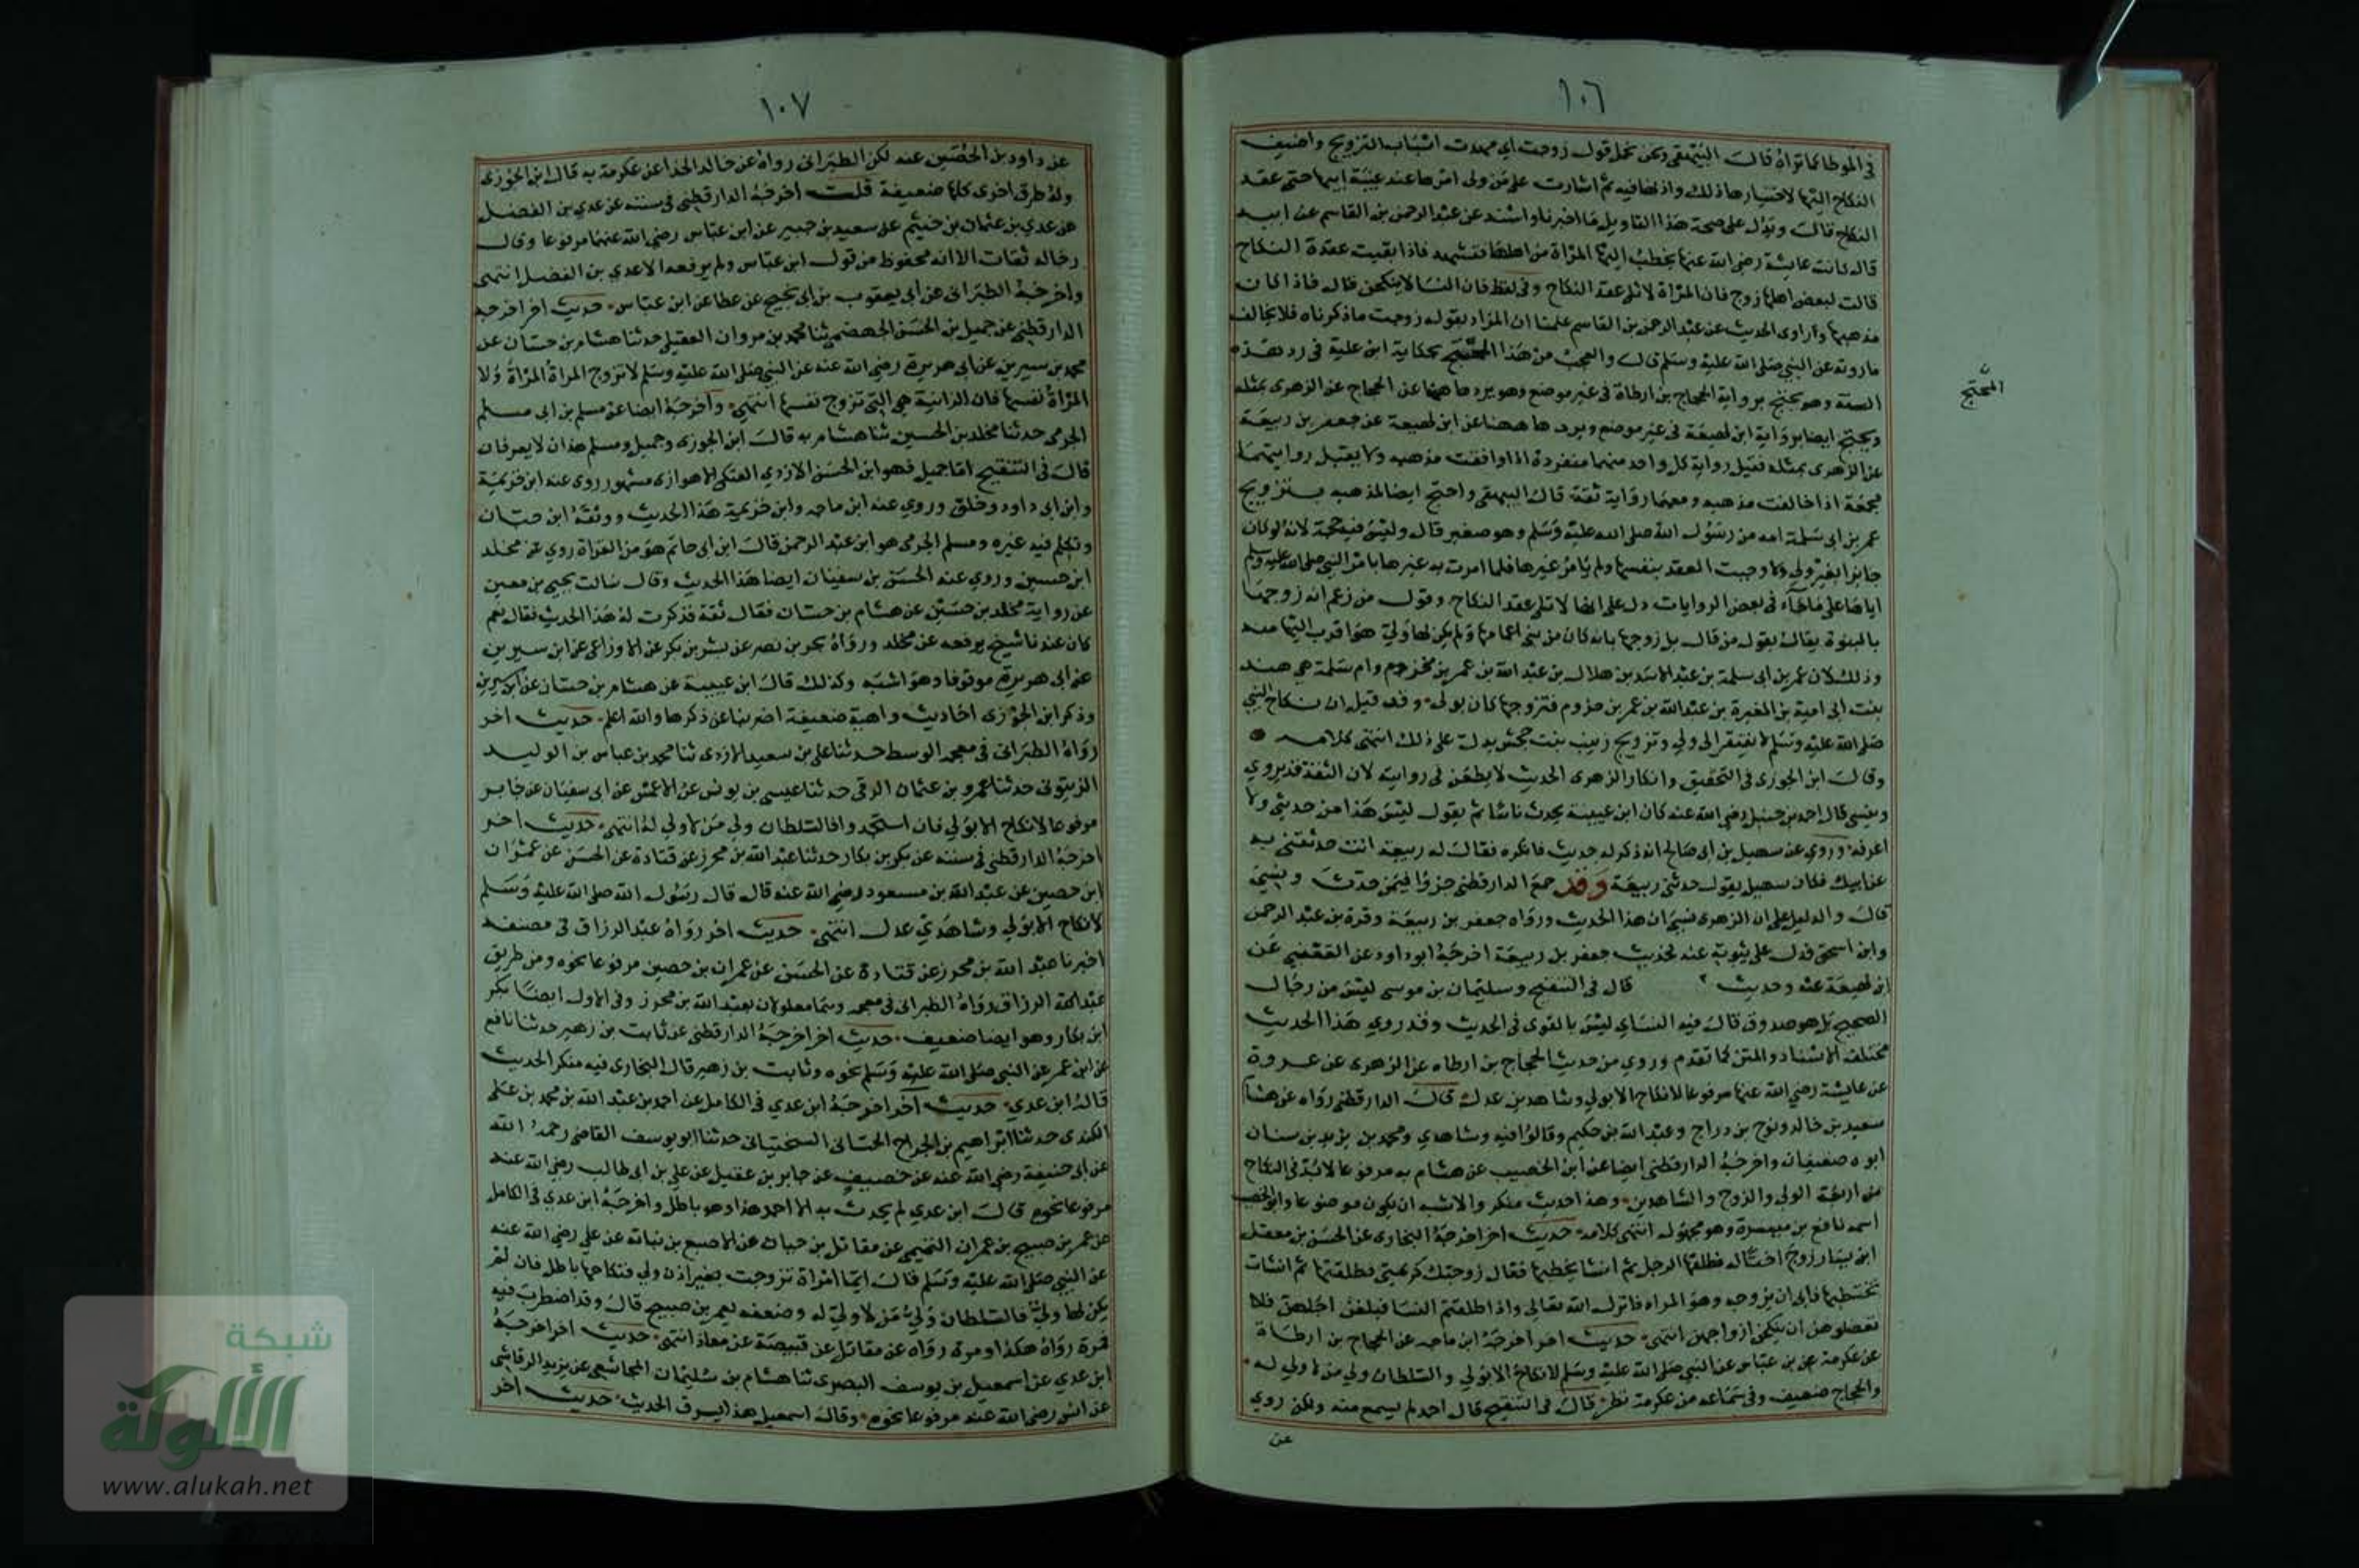 ١٠٦
في الموطا كما تراه قالت البيهقي ونحن نحمل قوله زوجت اي مهدت اسباب التزويج واضيف
النكاح اليها لاختيارها ذلك واذنها فيه ثم اشارت على من ولي امرها عند غيبة ابيها حتى عقد
النكاح قال ويدل على صحة هذا التاويل ما اخبرنا واسند عن عبد الرحمن بن القاسم عن ابيه
قال كانت عايشة رضي الله عنها يخطب اليها المراة من اهلها فتشهد فاذا بقيت عقدة النكاح
قالت لبعض اهلها زوج فان المراة لا تلي عقد النكاح وفي لفظ فان النسا لا ينكحن قال فاذا كان
مذهبها وراوي الحديث عن عبد الرحمن بن القاسم علمنا ان المراد بقوله زوجت ما ذكرناه فلا يخالف
ما روته عن النبي صلى الله عليه وسلم قال والعجب من هذا المحتج بحكاية ابن علية في رد هذه
المحتج
السنة وهو يحتج برواية الحجاج بن ارطاة في غير موضع وهو يردها ههنا عن الحجاج عن الزهري بمثله
ويحتج ايضا برواية ابن لهيعة في غير موضع ويردها ههنا عن ابن لهيعة عن جعفر بن ربيعة
عن الزهري بمثله فيقبل رواية كل واحد منهما منفردة اذا وافقت مذهبه ولا يقبل روايتهما
مجمعة اذا خالفت مذهبه ومعهما رواية ثقة قال البيهقي واحتج ايضا لمذهبه بتزويج
عمر بن ابي سلمة امه من رسول الله صلى الله عليه وسلم وهو صغير قال وليس فيه حجة لانه لو كان
جايزا بغير ولي لاوجبت العقد بنفسها ولم تامر غيرها فلما امرت به غيرها بامر النبي صلى الله عليه وسلم
اياها على ما جاء في بعض الروايات دل على انها لا تلي عقد النكاح وقول من زعم انه زوجها
بالبنوة يقابل بقول من قال بل زوجها بانه كان من بني اعمامها ولم يكن لها ولي هو اقرب اليها منه
وذلك لان عمر بن ابي سلمة بن عبد الاسد بن هلال بن عبد الله بن عمر بن مخزوم وام سلمة هي هند
بنت ابي امية بن المغيرة بن عبد الله بن عمر بن مخزوم فتزوجها كان بولي وقد قيل ان نكاح النبي
صلى الله عليه وسلم لا يفتقر الى ولي وتزويج زينب بنت جحش يدل على ذلك انتهى كلامه
وقال ابن الجوزي في التحقيق وانكار الزهري الحديث لا يطعن في روايته لان الثقة قد يروي
وينسى قال احمد بن حنبل رضي الله عنه كان ابن عيينة يحدث ناسا ثم يقول ليس هذا من حديثي ولا
اعرفه وروي عن سهيل بن ابي صالح انه ذكر له حديث فانكره فقال له ربيعة انت حدثتني به
عن ابيك فكان سهيل يقول حدثني ربيعة وقد جمع الدارقطني جزؤا فيمن حدث ونسي
قال والدليل على ان الزهري نسي ان هذا الحديث ورواه جعفر بن ربيعة وقرة بن عبد الرحمن
وابن اسحق فدل على ثبوته عنه لحديث جعفر بن ربيعة اخرجه ابو داود عن القعنبي عن
ابن لهيعة عنه وحديث قال في التنقيح وسليمان بن موسى ليس من رجال
الصحيح بل هو صدوق قال فيه النساي ليس بالقوي في الحديث وقد روي هذا الحديث
مختلف الاسناد والمتن كما تقدم وروي من حديث الحجاج بن ارطاه عن الزهري عن عروة
عن عايشة رضي الله عنها مرفوعا لا نكاح الا بولي وشاهدين عدل قال الدارقطني رواه عن هشام
سعيد بن خالد ونوح بن دراج وعبد الله بن حكيم وقالوا فيه وشاهدي ومحمد بن يزيد بن سنان
ابوه ضعيفان واخرجه الدارقطني ايضا عن ابن الخصيب عن هشام به مرفوعا لا بد في النكاح
من اربعة الولي والزوج والشاهدين وهذا حديث منكر والاشبه ان يكون موضوعا وابو الخصيب
اسمه نافع بن ميسرة وهو مجهول انتهى كلامه حديث اخر اخرجه البخاري عن الحسن بن معقل
ابن يسار زوج اختا له فطلقها الرجل ثم انشا يخطبها فقال زوجتك كريمتي فطلقتها ثم انشات
تخطبها فابى ان يزوجه وهو المراه فانزل الله تعالى واذا طلقتم النسا فبلغن اجلهن فلا
تعضلوهن ان ينكحن ازواجهن انتهى حديث اخر اخرجه ابن ماجه عن الحجاج بن ارطاة
عن عكرمة عن بن عباس عن النبي صلى الله عليه وسلم لا نكاح الا بولي والسلطان ولي من لا ولي له
والحجاج ضعيف وفي سماعه من عكرمة نظر قال في التنقيح قال احمد لم يسمع منه ولكن روي
عن
١٠٧
عن داود بن الحصين عنه لكن الطبراني رواه عن خالد الحذا عن عكرمة به قال ابن الجوزي
وله طرق اخرى كلها ضعيفة قلت اخرجه الدارقطني في سننه عن عدي بن الفضل
عن عدي بن عثمان بن خثيم عن سعيد بن جبير عن ابن عباس رضي الله عنهما مرفوعا وقال
رجاله ثقات الا انه محفوظ من قول ابن عباس ولم يرفعه الا عدي بن الفضل انتهى
واخرجه الطبراني عن ابي يعقوب بن ابي نجيح عن عطا عن ابن عباس حديث اخر اخرجه
الدارقطني عن جميل بن الحسن الجهضمي ثنا محمد بن مروان العقيلي حدثنا هشام بن حسان عن
محمد بن سيرين عن ابي هريرة رضي الله عنه عن النبي صلى الله عليه وسلم لا تزوج المراة المراة ولا
المراة نفسها فان الزانية هي التي تزوج نفسها انتهى واخرجه ايضا عن مسلم بن ابي مسلم
الجرمي حدثنا مخلد بن الحسين ثنا هشام به قال ابن الجوزي وجميل ومسلم هذان لا يعرفان
قال في التنقيح اما جميل فهو ابن الحسن الازدي العتكي الاهوازي مشهور روى عنه ابن خزيمة
وابن ابي داود وخلق وروي عنه ابن ماجه وابن خزيمة هذا الحديث ووثقه ابن حبان
وتكلم فيه غيره ومسلم الجرمي هو ابن عبد الرحمن قال ابن ابي حاتم هو من الغزاة روي عن مخلد
ابن حسين وروي عنه الحسن بن سفيان ايضا هذا الحديث وقال سالت يحيى بن معين
عن رواية مخلد بن حسين عن هشام بن حسان فقال ثقة فذكرت له هذا الحديث فقال نعم
كان عندنا شيخ يرفعه عن مخلد ورواه بحر بن نصر عن بشر بن بكر عن الاوزاعي عن ابن سيرين
عن ابي هريرة موقوفا وهو اشبه وكذلك قال ابن عيينة عن هشام بن حسان عن ابن سيرين
وذكر ابن الجوزي احاديث واهية ضعيفة اضربنا عن ذكرها والله اعلم حديث اخر
رواه الطبراني في معجمه الوسط حدثنا علي بن سعيد الازدي ثنا محمد بن عباس بن الوليد
الزيتوني حدثنا عمرو بن عثمان الرقي حدثنا عيسى بن يونس عن الاعمش عن ابي سفيان عن جابر
مرفوعا لا نكاح الا بولي فان اشتجروا فالسلطان ولي من لا ولي له انتهى حديث اخر
اخرجه الدارقطني في سننه عن بكر بن بكار حدثنا عبد الله بن محرز عن قتادة عن الحسن عن عمران
ابن حصين عن عبد الله بن مسعود رضي الله عنه قال قال رسول الله صلى الله عليه وسلم
لا نكاح الا بولي وشاهدي عدل انتهى حديث اخر رواه عبد الرزاق في مصنفه
اخبرنا عبد الله بن محرز عن قتادة عن الحسن عن عمران بن حصين مرفوعا نحوه ومن طريق
عبد الرزاق رواه الطبراني في معجمه وهما معلولان بعبد الله بن محرز وفي الاول ايضا بكر
ابن بكار وهو ايضا ضعيف حديث اخر اخرجه الدارقطني عن ثابت بن زهير حدثنا نافع
عن ابن عمر عن النبي صلى الله عليه وسلم نحوه وثابت بن زهير قال البخاري فيه منكر الحديث
قاله ابن عدي حديث اخر اخرجه ابن عدي في الكامل عن احمد بن عبد الله بن محمد بن علي
الكندي حدثنا ابراهيم بن الجراح السختياني حدثنا ابو يوسف القاضي رحمه الله
عن ابي حنيفة رضي الله عنه عن خصيف عن جابر بن عقيل عن علي بن ابي طالب رضي الله عنه
مرفوعا نحوه قال ابن عدي لم يحدث به الا احمد هذا وهو باطل واخرجه ابن عدي في الكامل
عن عمر بن صبيح بن عمران التميمي عن مقاتل بن حيان عن الاصبع بن نباتة عن علي رضي الله عنه
عن النبي صلى الله عليه وسلم قال ايما امراة تزوجت بغير اذن ولي فنكاحها باطل فان لم
يكن لها ولي فالسلطان ولي من لا ولي له وضعفه بعمر بن صبيح قال وقد اضطرب فيه
فمرة رواه هكذا ومرة رواه عن مقاتل عن قبيصة عن معاذ انتهى حديث اخر اخرجه
ابن عدي عن اسمعيل بن يوسف البصري ثنا هشام بن سليمان المجاشعي عن يزيد الرقاشي
عن انس رضي الله عنه مرفوعا نحوه وقال اسمعيل هذا يسرق الحديث حديث اخر
شبكة
الألوكة
www.alukah.net